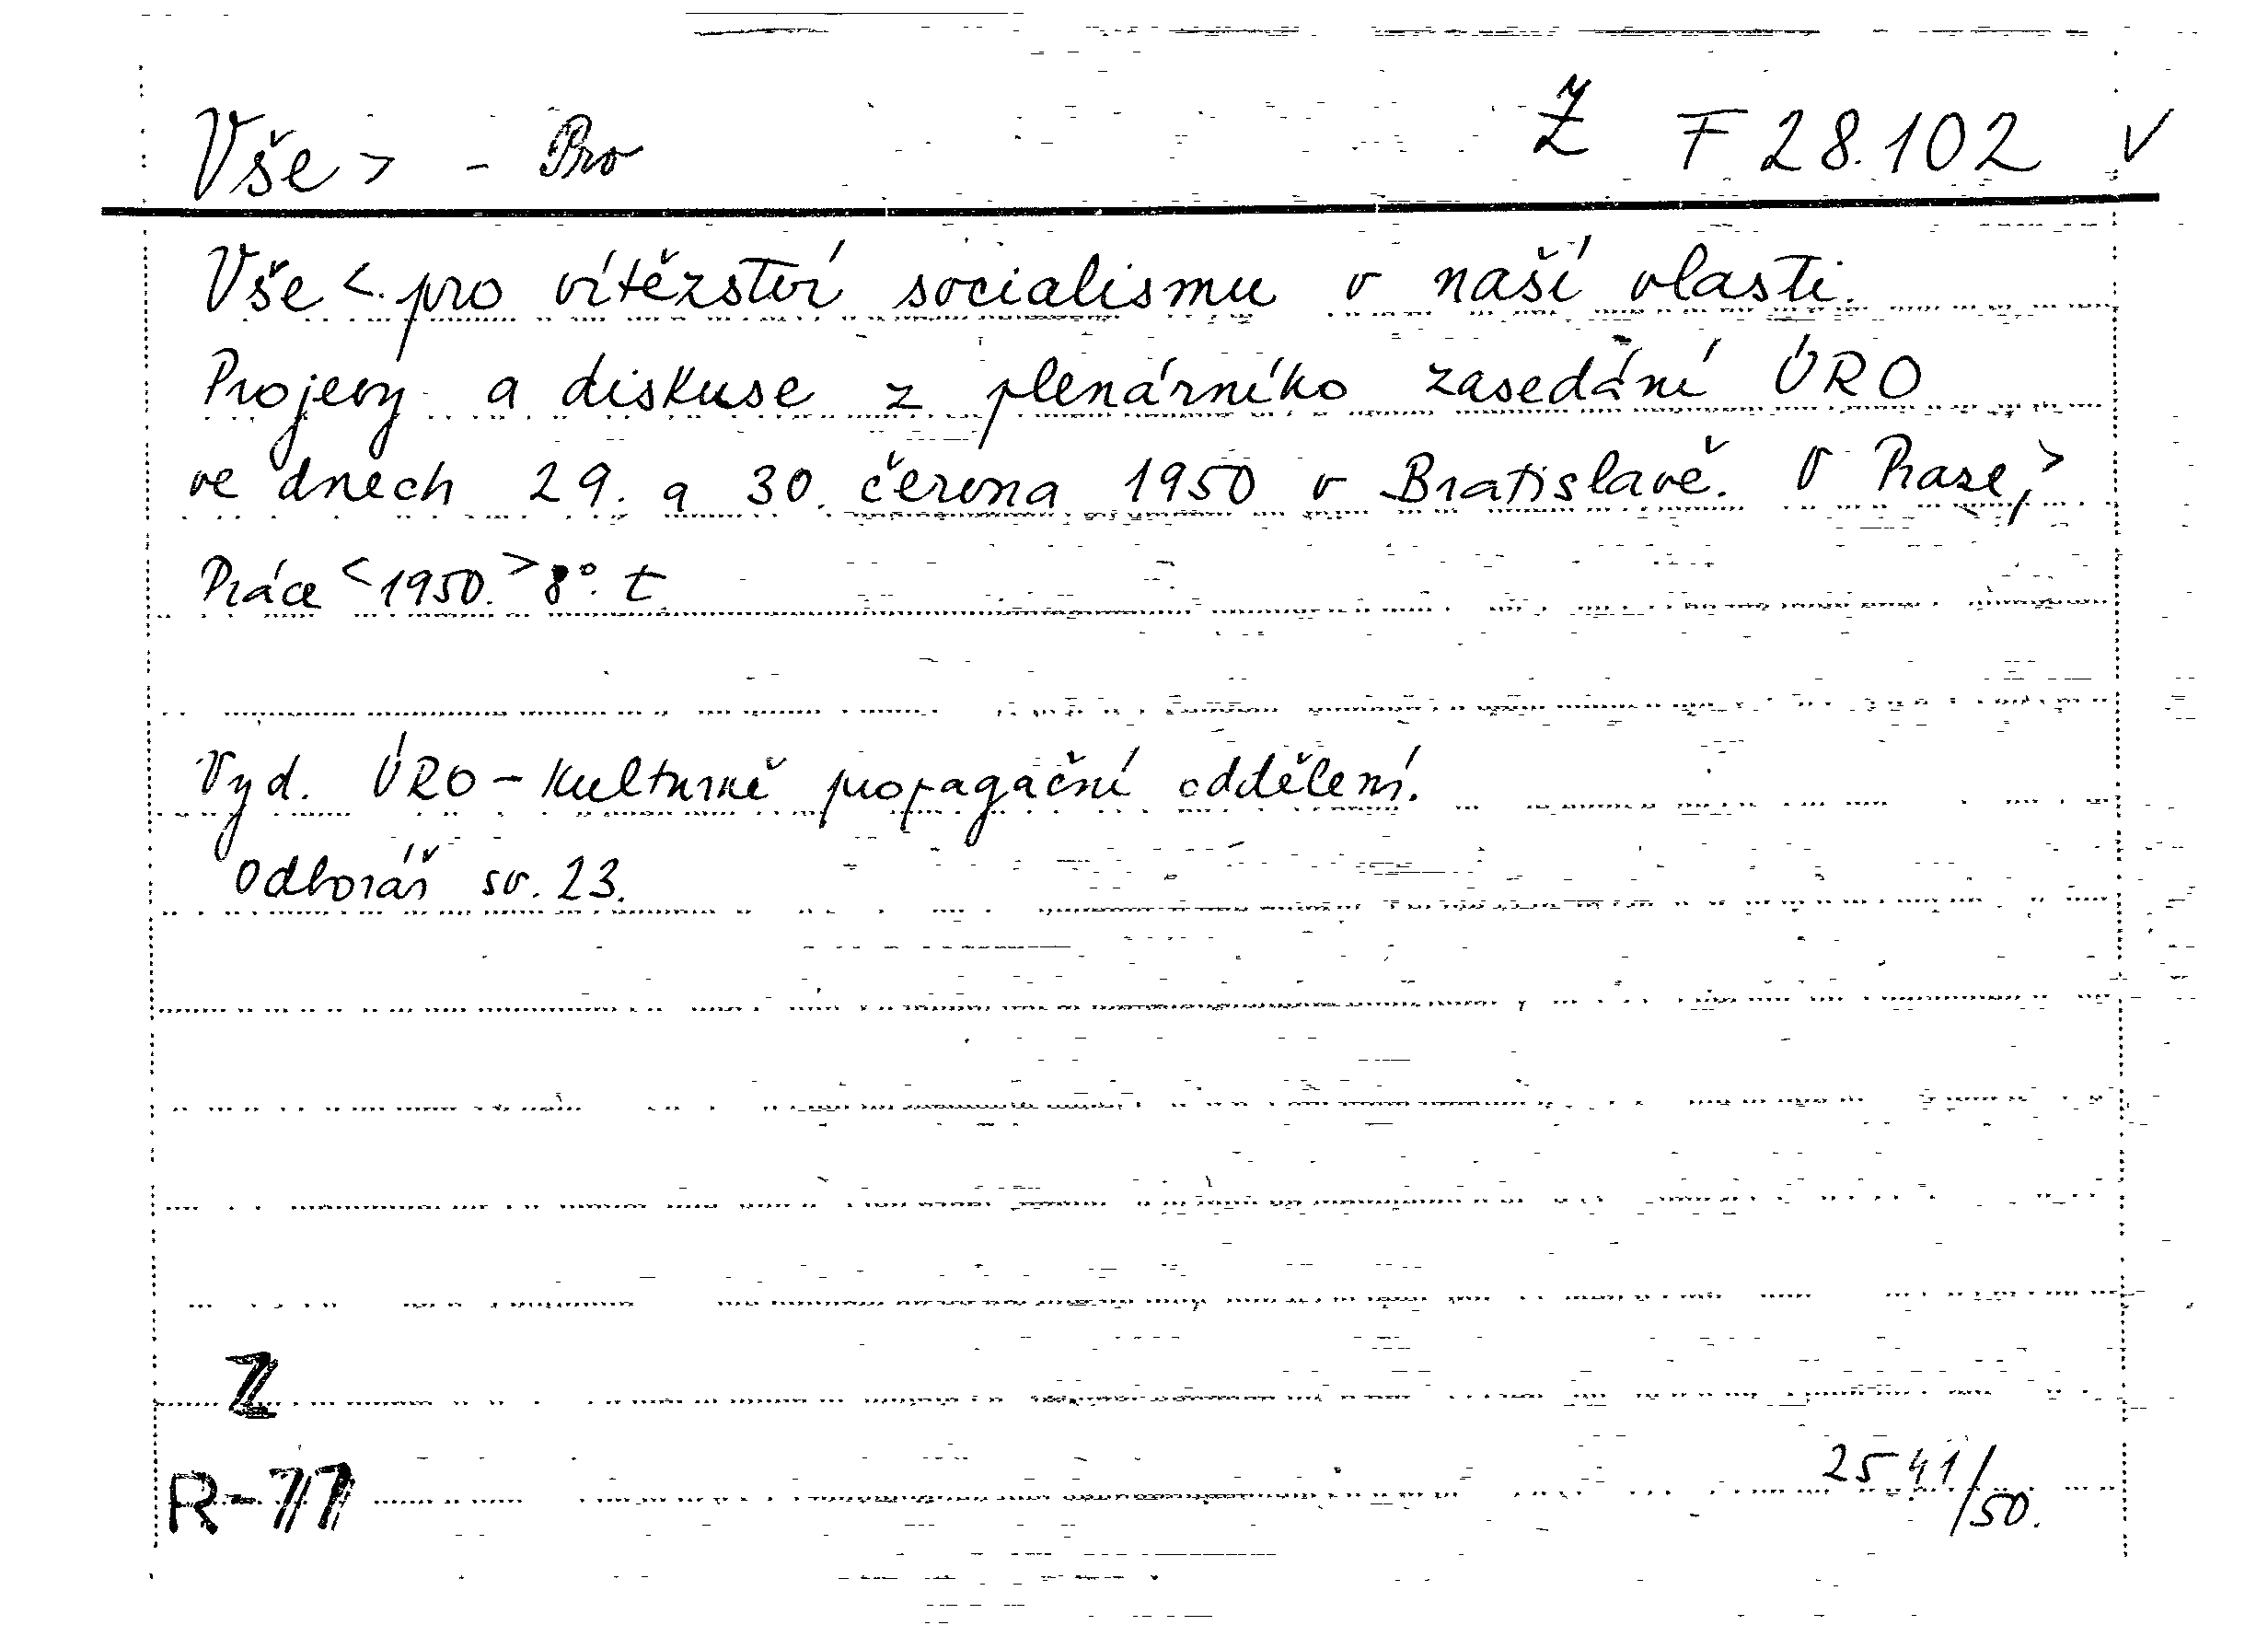 Vše > - Pro Ž F 28.102 v
Vše <. pro vítězství socialismu v naší vlasti.
Projevy a diskuse z plenárního zasedání ÚRO
ve dnech 29. a 30. června 1950 v Bratislavě. V Praze, >
Práce < 1950. > 8°. t.
Vyd. ÚRO - Kulturně propagační oddělení.
Odborář sv. 23.
Z
R-77
2541/50.